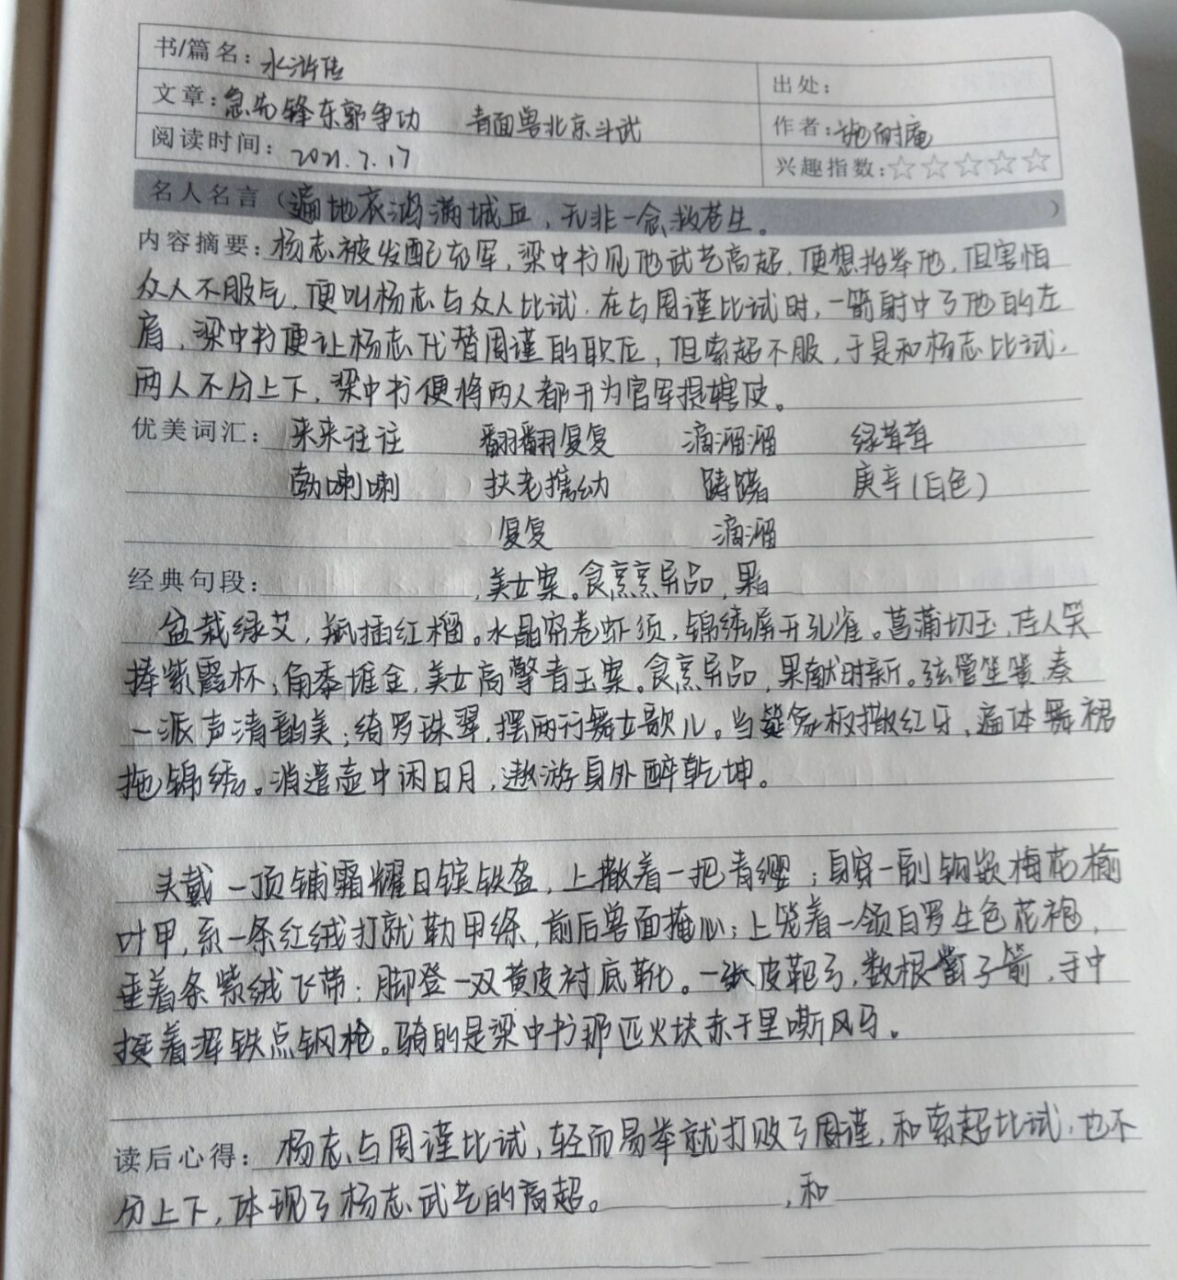 书/篇名：水浒传
出处：
文章：急先锋东郭争功 青面兽北京斗武
作者：施耐庵
阅读时间：2021.7.17
兴趣指数：☆☆☆☆☆
名人名言（遍地哀鸿满城血，无非一念救苍生。）
内容摘要：杨志被发配充军，梁中书见他武艺高超，便想抬举他，但害怕
众人不服气，便叫杨志与众人比试，在与周谨比试时，一箭射中了他的左
肩，梁中书便让杨志代替周谨的职位，但索超不服，于是和杨志比试，
两人不分上下，梁中书便将两人都升为官军提辖使。
优美词汇：来来往往 翻翻复复 滴溜溜 绿茸茸
勃喇喇 扶老携幼 踌躇 庚辛（白色）
复复 滴溜
经典句段： ，美女案。食烹烹异品，果
盆栽绿艾，瓶插红榴。水晶帘卷虾须，锦绣屏开孔雀。菖蒲切玉，佳人笑
捧紫霞杯；角黍堆金，美女高擎青玉案。食烹异品，果献时新。弦管笙簧，奏
一派声清韵美；绮罗珠翠，摆两行舞女歌儿。当筵象板撒红牙，遍体舞裙
拖锦绣。消遣壶中闲日月，遨游身外醉乾坤。
头戴一顶铺霜耀日镔铁盔，上撒着一把青缨；身穿一副钩嵌梅花榆
叶甲，系一条红绒打就勒甲绦，前后兽面掩心；上笼着一领白罗生色花袍，
垂着条紫绒飞带；脚登一双黄皮衬底靴。一张皮靶弓，数根凿子箭，手中
挺着浑铁点钢枪。骑的是梁中书那匹火块赤千里嘶风马。
读后心得：杨志与周谨比试，轻而易举就打败了周谨，和索超比试，也不
分上下，体现了杨志武艺的高超。 ，和